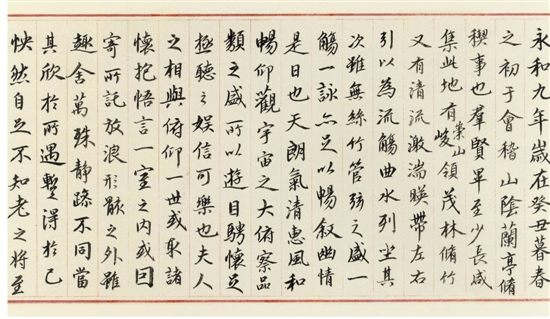 永和九年歲在癸丑暮春
之初于會稽山陰蘭亭脩
稧事也羣賢畢至少長咸
集此地有崇山峻領茂林脩竹
又有清流激湍暎帶左右
引以為流觴曲水列坐其
次雖無絲竹管弦之盛一
觴一詠亦足以暢叙幽情
是日也天朗氣清惠風和
暢仰觀宇宙之大俯察品
類之盛所以遊目騁懷足
極聽之娛信可樂也夫人
之相與俯仰一世或取諸
懷抱悟言一室之內或因
寄所託放浪形骸之外雖
趣舍萬殊靜躁不同當
其欣於所遇蹔得於己
怏然自足不知老之將至